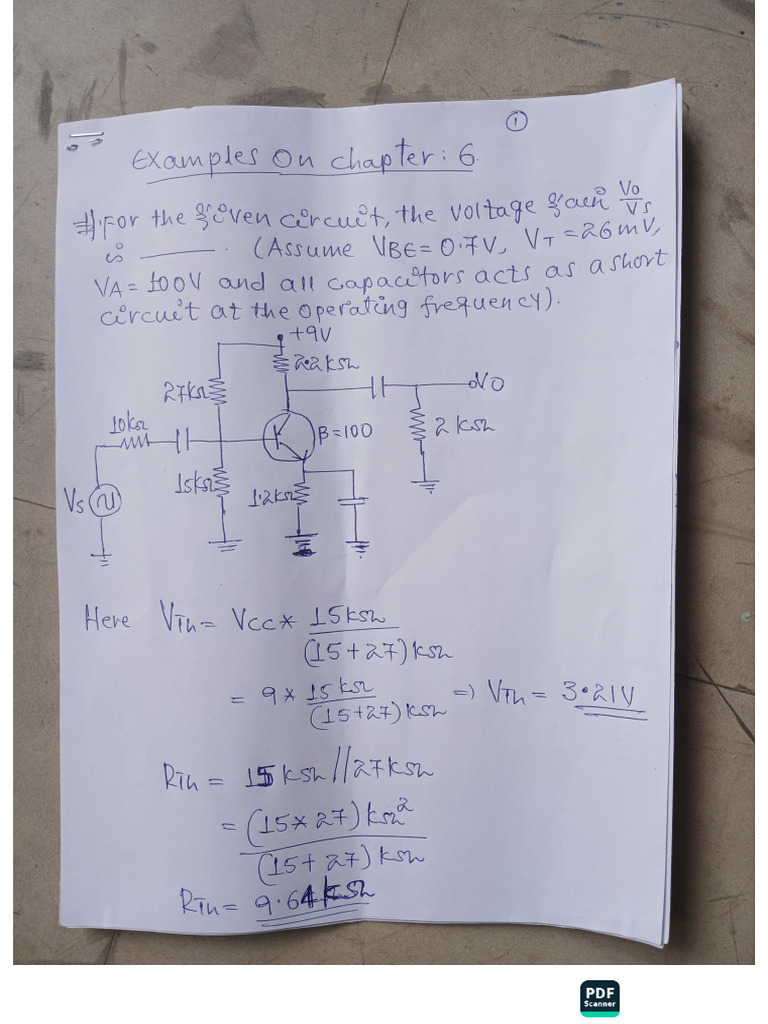 ①
Examples on chapter: 6.
#). For the given circuit, the voltage gain Vo/Vs
is ______. (Assume VBE = 0.7V, VT = 26mV,
VA = 100V and all capacitors acts as a short
circuit at the operating frequency).
+9V
2.2kΩ
27kΩ
VO
10kΩ
β=100
2kΩ
15kΩ
1.2kΩ
Vs
Here VTh = VCC * 15kΩ / (15+27)kΩ
= 9 * 15kΩ / (15+27)kΩ => VTh = 3.21V
RTh = 15kΩ // 27kΩ
= (15*27)kΩ² / (15+27)kΩ
RTh = 9.64kΩ
PDF
Scanner